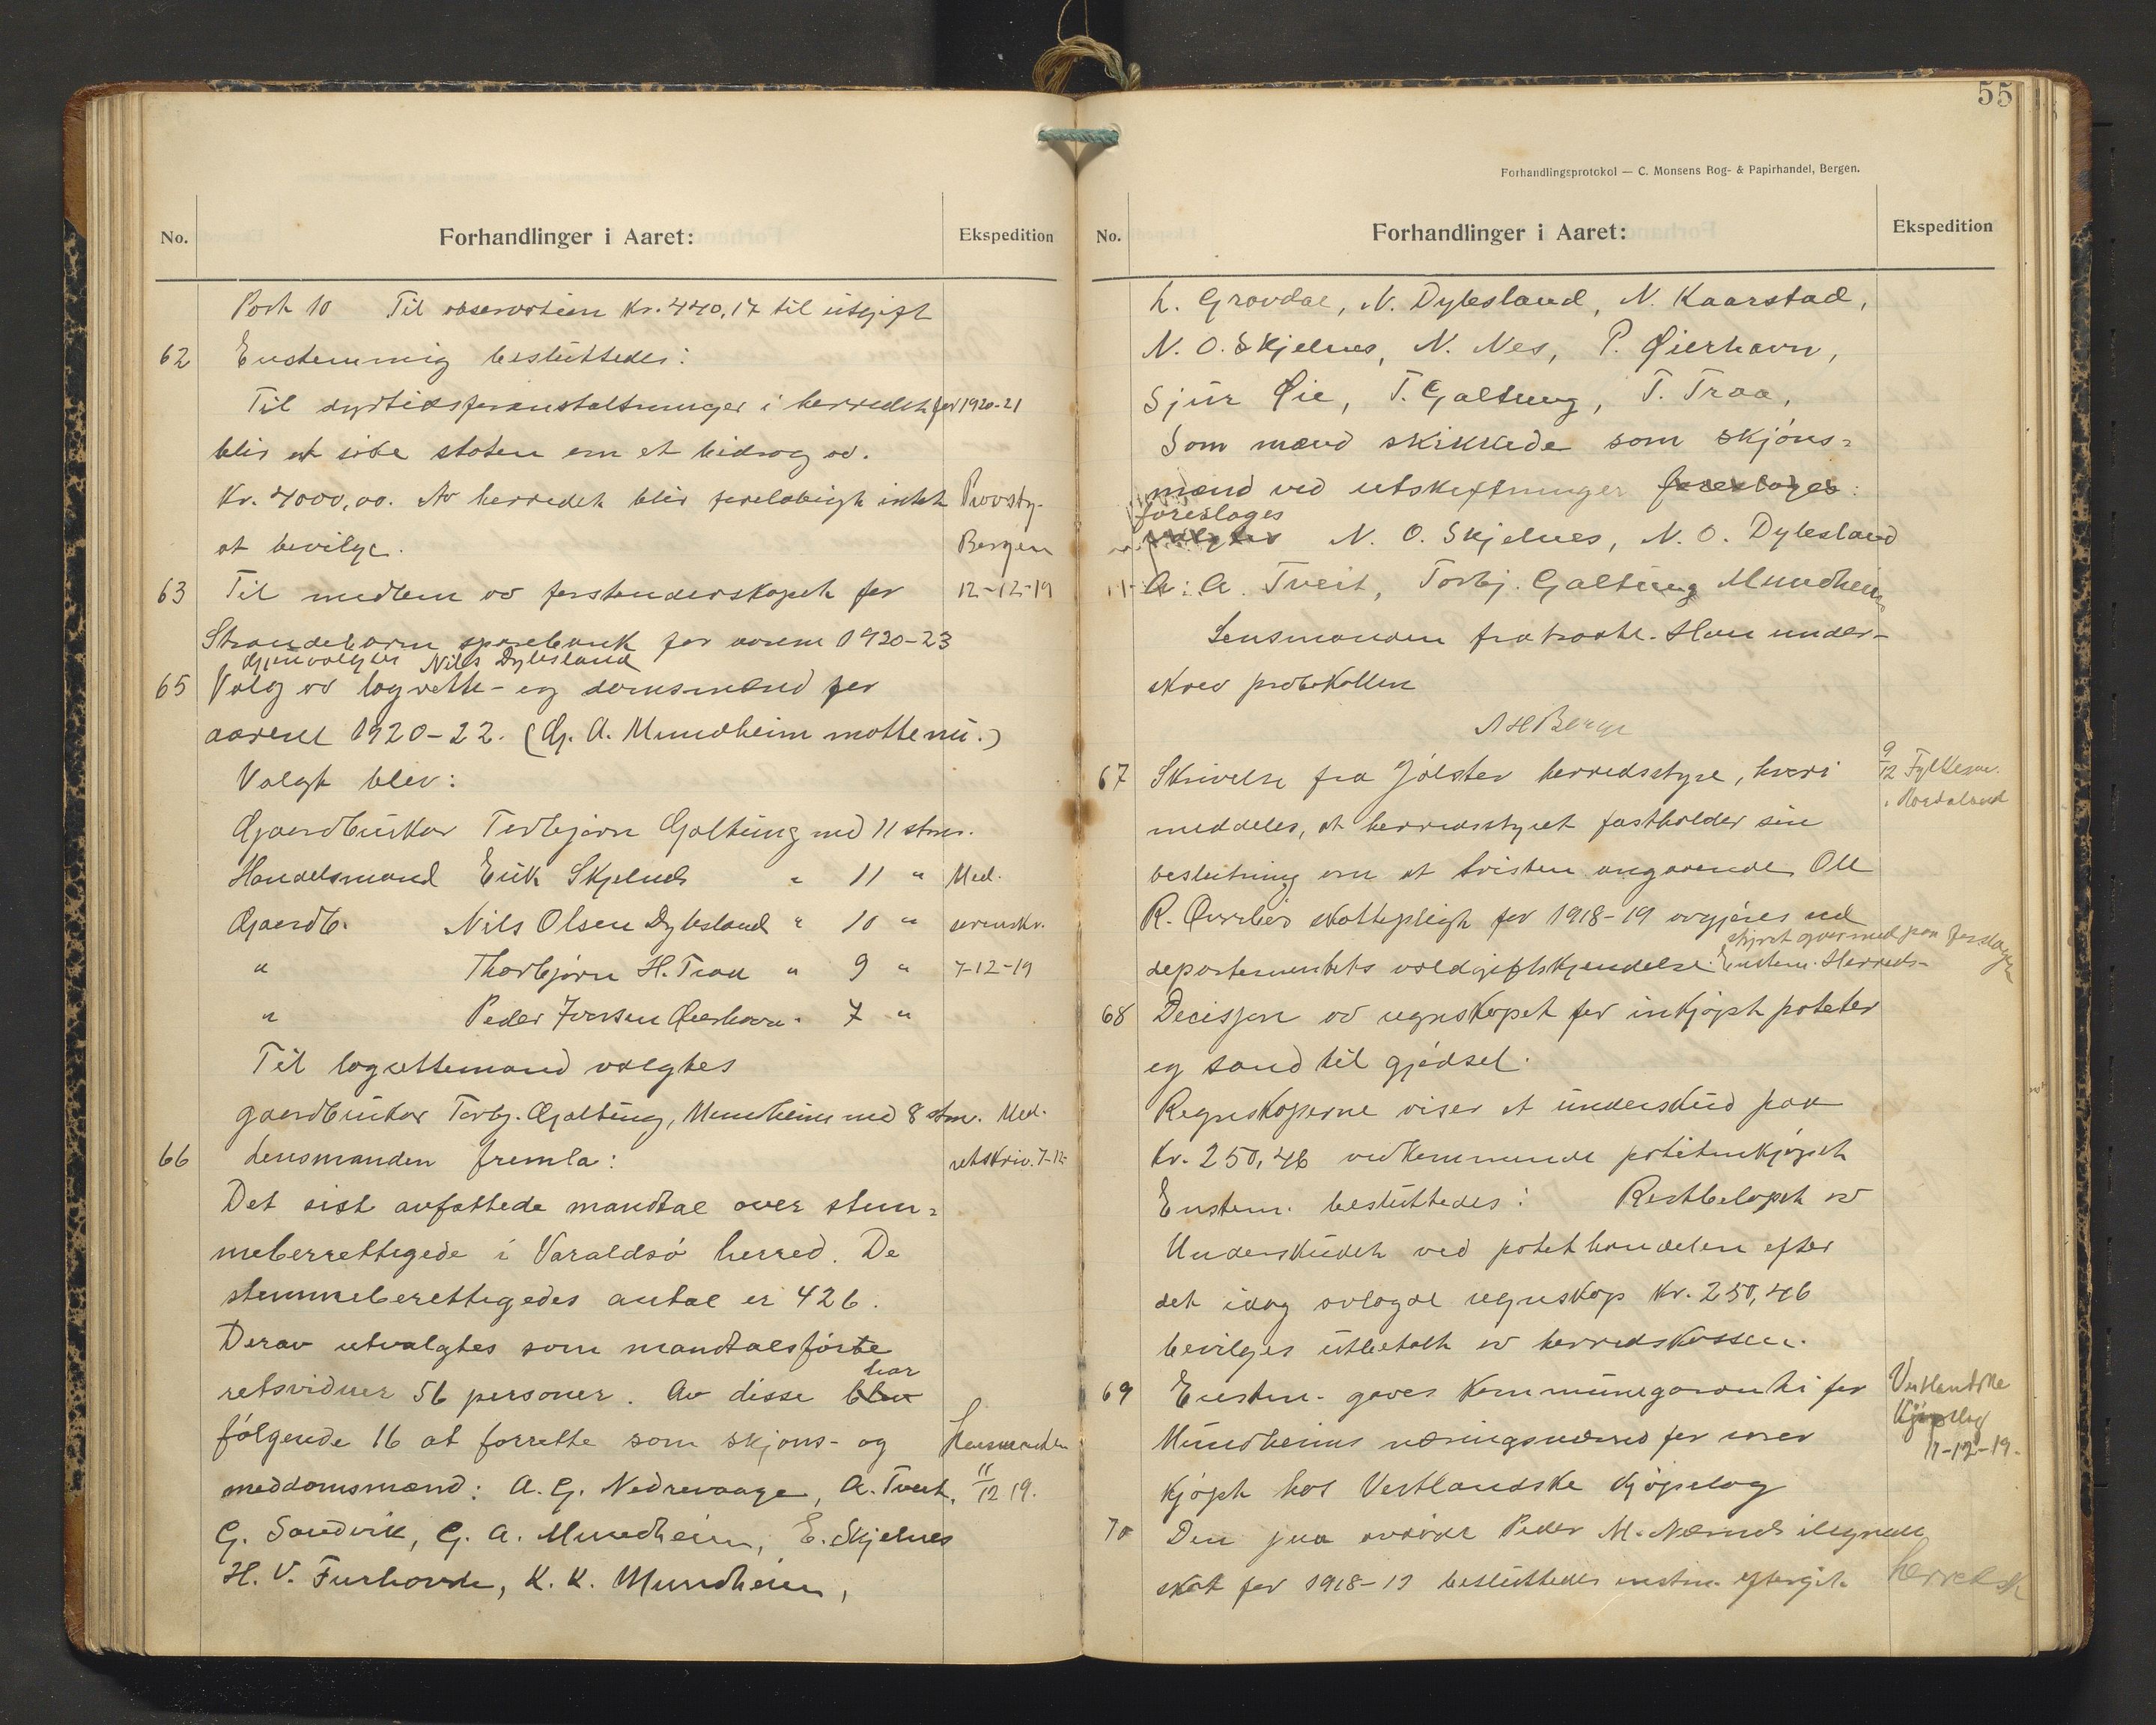 No.
Forhandlinger i Aaret:
Ekspedition
Post 10 Til observation Kr. 440,17 til utgift
62 Enstemmig besluttedes:
Til dyrtidsforanstaltninger i herredet for 1920-21
blir at søke staten om et bidrag av.
Kr. 4000,00. Av herredet blir foreløbigt intet
at bevilge.
Provsty.
Bergen
12-12-19
63 Til medlem av forstanderskapet for
Strandebarm sparebank for aarene 1920-23
gjenvalgtes Nils Dybesland
65 Valg av lagrette- og domsmænd for
aarene 1920-22. (G. A. Mundheim møtte nu.)
Valgt blev:
Gaardbruker Torbjørn Galtung med 11 stm.
Handelsmand Erik Skjelnes " 11 "
Gaardb. Nils Olsen Dybesland " 10 "
" Thorbjørn H. Traa " 9 "
" Peder Iversen Øierhavn " 7 "
Med.
sorenskr.
7-12-19
Til lagrettemand valgtes
gaardbruker Torbj. Galtung, Mundheim med 8 stm.
Med.
retskriv. 7-12-
66 Lensmanden fremla:
Det sist avfattede mandtal over stem=
meberrettigede i Varaldsø herred. De
stemmeberettigedes antal er 426.
Derav utvalgtes som mandtalsførte
retsvidner 56 personer. Av disse blev har
følgende 16 at forrette som skjøns- og
meddomsmænd: A. G. Nedrevaage, A. Tveit,
G. Sandvik, G. A. Mundheim, E. Skjelnes
H. V. Furhovde, K. K. Mundheim,
Lensmanden
11/12 19.
55
Forhandlingsprotokol — C. Monsens Bog- & Papirhandel, Bergen.
No.
Forhandlinger i Aaret:
Ekspedition
L. Grovdal, N. Dybesland, N. Kaarstad,
N. O. Skjelnes, N. Nes, P. Øierhavn,
Sjur Øie, T. Galtung, T. Traa,
Som mænd skikkede som skjøns=
mænd ved utskiftninger foreslages:
foreslages
valgtes N. O. Skjelnes, N. O. Dybesland
A. A. Tveit, Torbj. Galtung Mundheim
Lensmanden fratraadte. Han under-
skrev protokollen
N H Berge
67 Skrivelse fra Jølster herredsstyre, hvori
meddeles, at herredsstyret fastholder sin
beslutning om at tvisten angaaende Ole
R. skattepligt for 1918-19 avgjøres ved
departementets voldgiftskjendelse. Enstem. Herreds-
styret gaar med paa forslaget
9/12 Fylkesm.
i Hordaland
68 Decisjon av regnskapet for inkjøpt poteter
og sand til gjødsel.
Regnskaperne viser et underskud paa
Kr. 250,46 vedkommende potetinkjøpet
Enstem. besluttedes: Restbeløpet av
Underskudet ved potethandelen efter
det idag avlagde regnskap Kr. 250,46
bevilges utbetalt av herredskassen.
69 Enstem. gaves Kommunegaranti for
Mundheims næringsnævnd for varer
kjøpt hos Vestlandske Kjøpelag
Vestlandske
Kjøpelag
11-12-19.
70 Den paa avdøde Peder M. Nærnes ilignede
skat for 1918-19 besluttedes enstm. eftergit.
herredsk